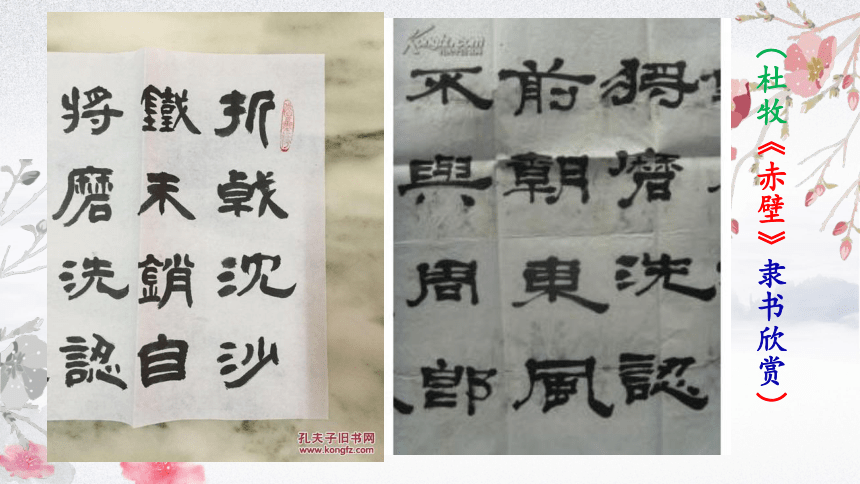 折戟沈沙
鐵未銷自
將磨洗認
孔夫子旧书网
www.kongfz.com
Kongfz.com
將磨洗認
前朝東風
不與周郎
（杜牧《赤壁》隶书欣赏）